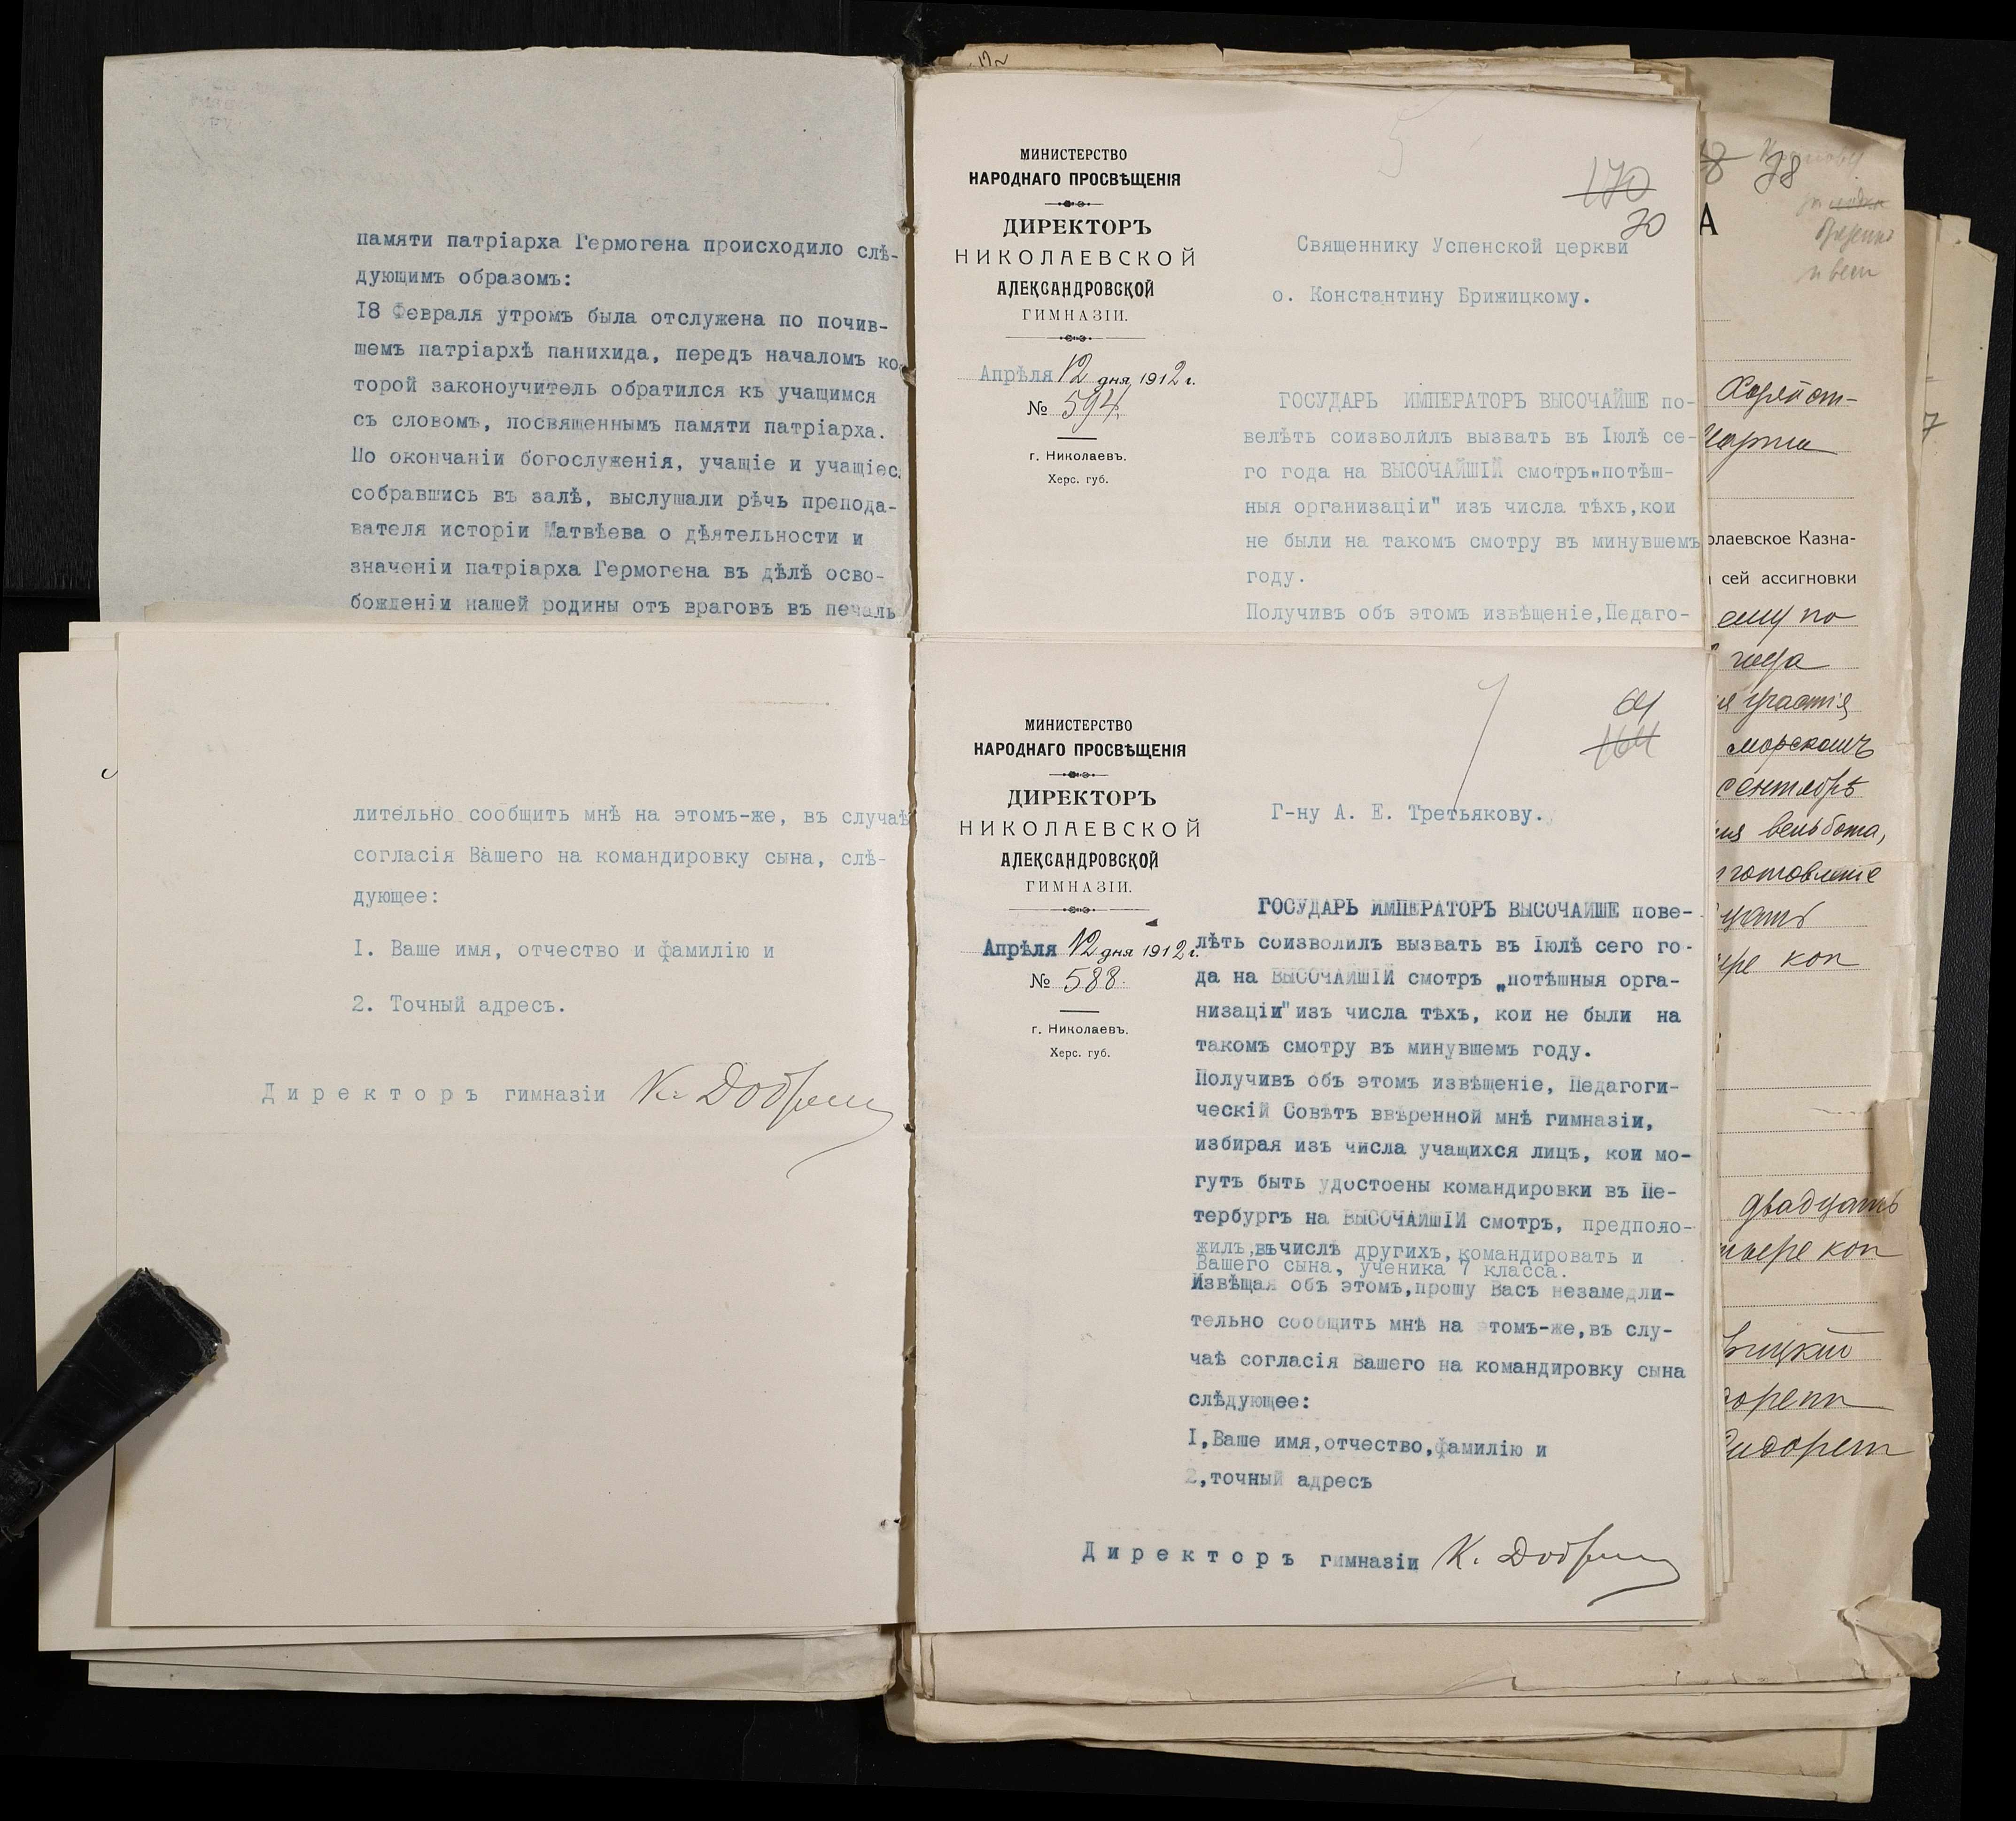 памяти патріарха Гермогена происходило слѣ-
дующимъ образомъ:
18 Февраля утромъ была отслужена по почив-
шемъ патріархѣ панихида, передъ началомъ ко-
торой законоучитель обратился къ учащимся
съ словомъ, посвященнымъ памяти патріарха.
По окончаніи богослуженія, учащіе и учащіес
собравшись въ залѣ, выслушали рѣчь препода-
вателя исторіи Матвѣева о дѣятельности и
значеніи патріарха Гермогена въ дѣлѣ осво-
божденіи нашей родины отъ враговъ въ печаль
МИНИСТЕРСТВО
НАРОДНАГО ПРОСВѢЩЕНІЯ
ДИРЕКТОРЪ
НИКОЛАЕВСКОЙ
АЛЕКСАНДРОВСКОЙ
ГИМНАЗІИ.
Апрѣля 12 дня 1912 г.
№ 594.
г. Николаевъ.
Херс. губ.
5
170
70
Священнику Успенской церкви
о. Константину Брижицкому.
ГОСУДАРЬ ИМПЕРАТОРЪ ВЫСОЧАЙШЕ по-
велѣть соизволилъ вызвать въ Іюлѣ се-
го года на ВЫСОЧАЙШІЙ смотръ„потѣш-
ныя организаціи" изъ числа тѣхъ,кои
не были на такомъ смотру въ минувшемъ
году.
Получивъ объ этомъ извѣщеніе,Педаго-
лительно сообщить мнѣ на этомъ-же, въ случаѣ
согласія Вашего на командировку сына, слѣ-
дующее:
I. Ваше имя, отчество и фамилію и
2. Точный адресъ.
Директоръ гимназіи
МИНИСТЕРСТВО
НАРОДНАГО ПРОСВѢЩЕНІЯ
ДИРЕКТОРЪ
НИКОЛАЕВСКОЙ
АЛЕКСАНДРОВСКОЙ
ГИМНАЗІИ.
Апрѣля 12 дня 1912 г.
№ 588.
г. Николаевъ.
Херс. губ.
64
164
Г-ну А. Е. Третьякову.
ГОСУДАРЬ ИМПЕРАТОРЪ ВЫСОЧАЙШЕ пове-
лѣть соизволилъ вызвать въ Іюлѣ сего го-
да на ВЫСОЧАЙШІЙ смотръ „потѣшныя орга-
низаціи" изъ числа тѣхъ, кои не были на
такомъ смотру въ минувшемъ году.
Получивъ объ этомъ извѣщеніе, Педагоги-
ческій Совѣтъ ввѣренной мнѣ гимназіи,
избирая изъ числа учащихся лицъ, кои мо-
гутъ быть удостоены командировки въ Пе-
тербургъ на ВЫСОЧАЙШІЙ смотръ, предполо-
жилъ,въ числѣ другихъ, командировать и
Вашего сына, ученика 7 класса.
Извѣщая объ этомъ,прошу Васъ незамедли-
тельно сообщить мнѣ на этомъ-же,въ слу-
чаѣ согласія Вашего на командировку сына
слѣдующее:
I,Ваше имя,отчество,фамилію и
2,точный адресъ
Директоръ гимназіи
78
А
Марта
олаевское Казна-
сей ассигновки
ему по
года
участія
морскомъ
сентябрѣ
вельбота,
готовленіе
коп
двадцать
коп
7